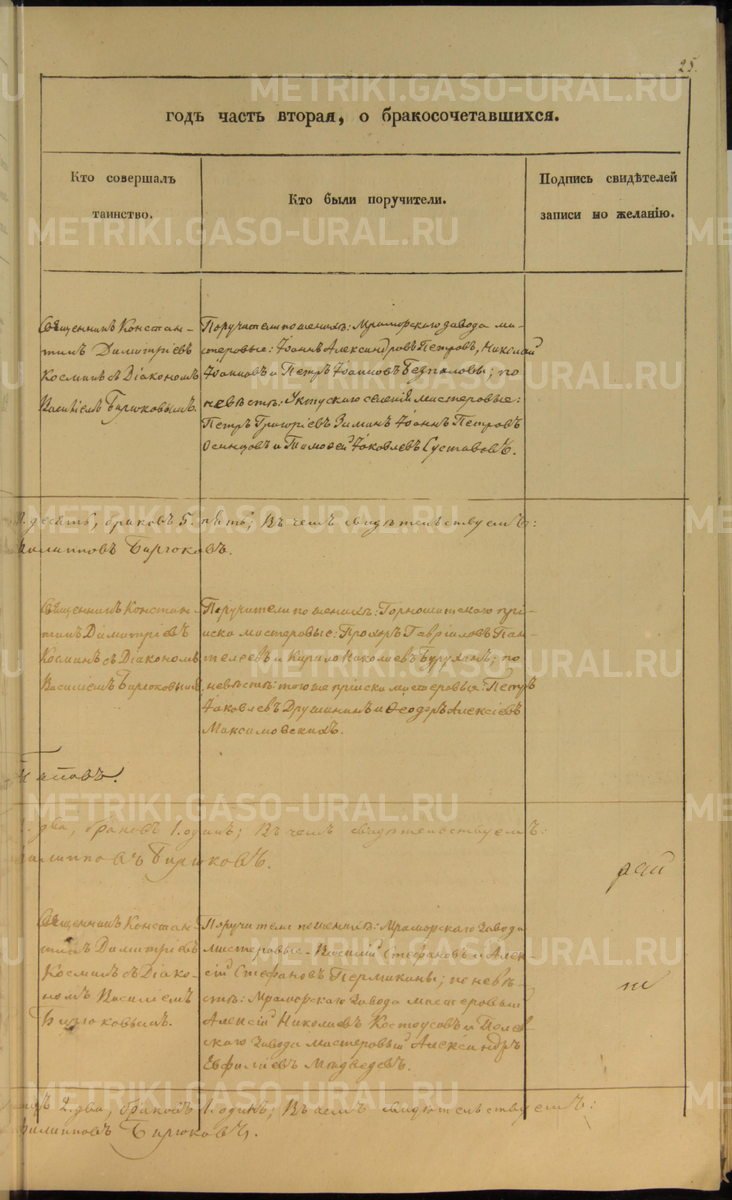 25.
годъ часть вторая, о бракосочетавшихся.
Кто совершалъ
таинство.
Кто были поручители.
Подпись свидѣтелей
записи по желанію.
METRIKI.GASO-URAL.RU
Священникъ Констан-
тинъ Димитріевъ
Косминъ съ Діакономъ
Василіемъ Бирюковымъ.
Поручители по женихѣ: Мраморскаго завода ма-
стеровые: Іоаннъ Александровъ Петровъ, Николай
Іоанновъ и Петръ Іоанновъ Безпаловы; по
невѣстѣ: Уктускаго селенія мастеровые:
Петръ Григоріевъ Зиминъ Іоаннъ Петровъ
Осинцовъ и Тимофей Іаковлевъ Суставовъ.
десять, браковъ 5. пять; Въ чемъ свидѣтельствуемъ:
Филипповъ Бирюковъ.
Священникъ Констан-
тинъ Димитріевъ
Косминъ съ Діакономъ
Василіемъ Бирюковымъ.
Поручители по женихѣ: Горнощитскаго прі-
иска мастеровые: Прохоръ Гавріиловъ Пан-
телеевъ и Николаевъ по
невѣстѣ: того же пріиска мастеровые: Петръ
Іаковлевъ Дружининъ и Феодоръ Алексіевъ
Максимовскихъ.
два, браковъ 1. одинъ; Въ чемъ свидѣтельствуемъ:
Филипповъ Бирюковъ.
Священникъ Констан-
тинъ Димитріевъ
Косминъ съ Діако-
номъ Василіемъ
Бирюковымъ.
Поручители по женихѣ: Мраморскаго завода
мастеровые Василій Стефановъ и Алек-
сій Стефановъ Пермикины; по невѣ-
стѣ: Мраморскаго завода мастеровый
Алексій Николаевъ Костоусовъ и Полев-
скаго завода мастеровый Александръ
Медведевъ.
2. два, браковъ 1. одинъ; Въ чемъ свидѣтельствуемъ:
Филипповъ Бирюковъ.